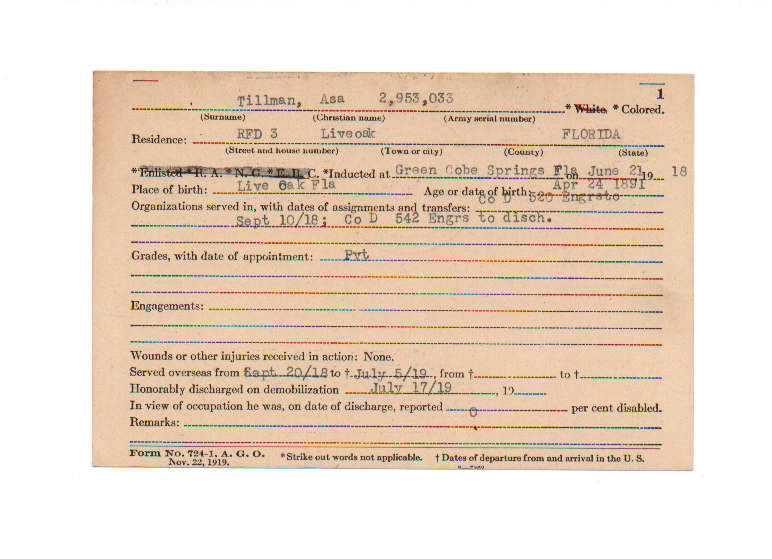 1
Tillman, Asa 2,953,033 * White * Colored.
(Surname) (Christian name) (Army serial number)
Residence: RFD 3 Liveoak FLORIDA
(Street and house number) (Town or city) (County) (State)
* Enlisted * R. A. * N. G. * E. R. C. * Inducted at Green Cobe Springs Fla on June 21 19 18
Place of birth: Live Oak Fla Age or date of birth: Apr 24 1891
Organizations served in, with dates of assignments and transfers: Co D 520 Engrsto
Sept 10/18; Co D 542 Engrs to disch.
Grades, with date of appointment: Pvt
Engagements:
Wounds or other injuries received in action: None.
Served overseas from Sept 20/18 to † July 5/19, from † to †
Honorably discharged on demobilization July 17/19, 19
In view of occupation he was, on date of discharge, reported 0 per cent disabled.
Remarks:
Form No. 724-1, A. G. O. * Strike out words not applicable. † Dates of departure from and arrival in the U. S.
Nov. 22, 1919.